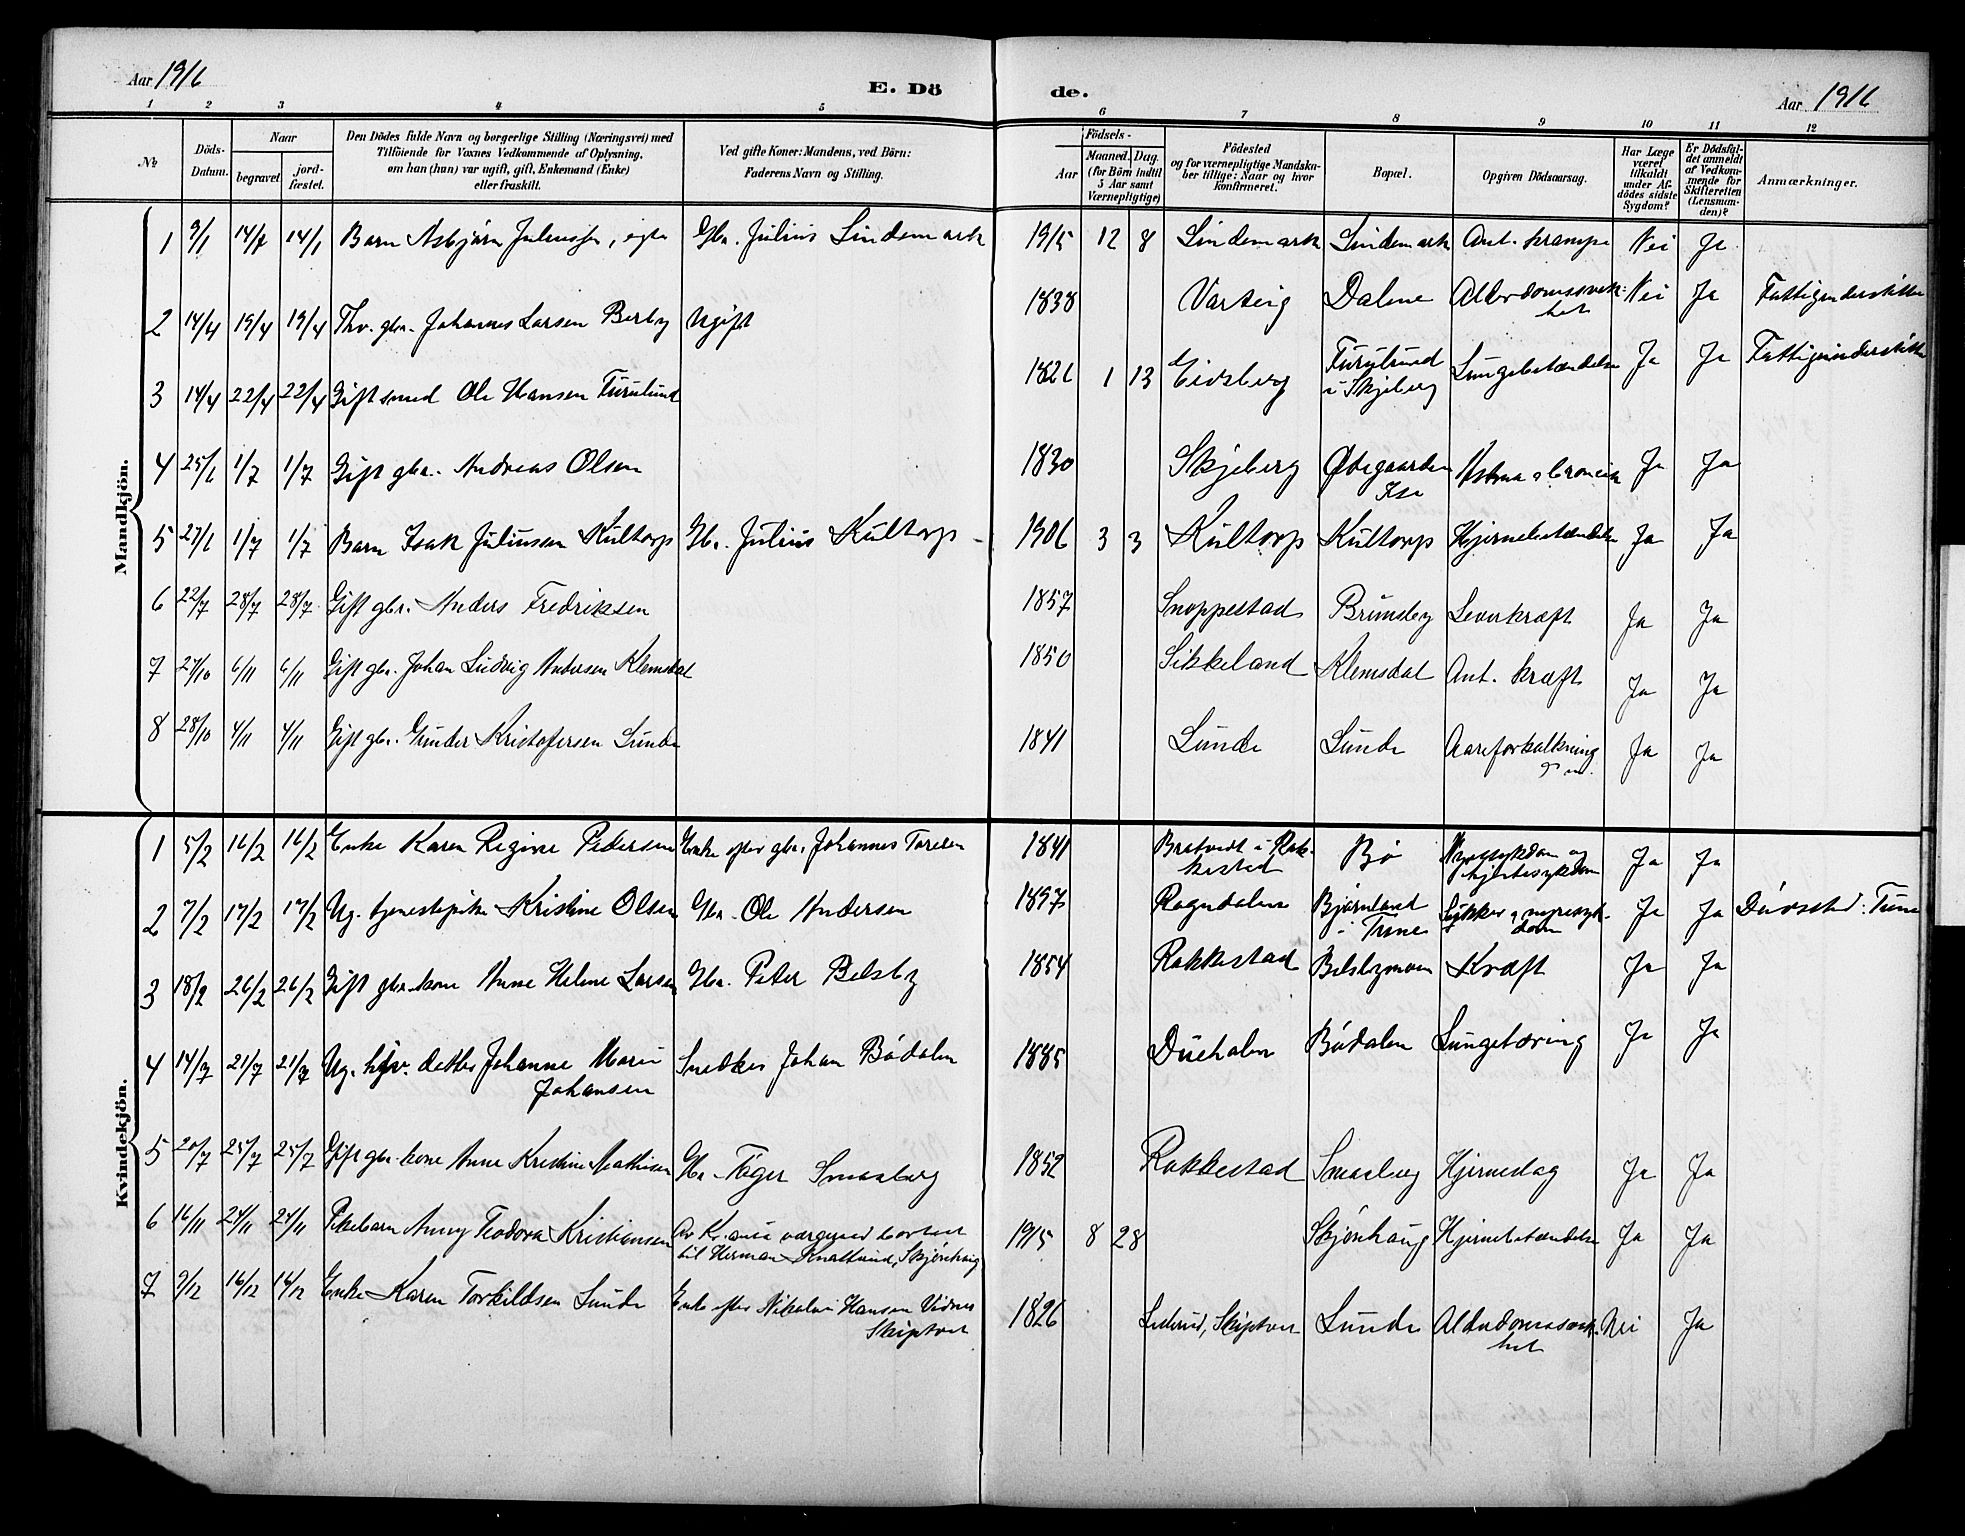 Aar 1916 E. Dö de. Aar 1916
1 2 3 4 5 6 7 8 9 10 11 12
№ Döds-Datum. Naar begravet. jord-fæstet. Den Dödes fulde Navn og borgerlige Stilling (Næringsvei) med Tilföiende for Voxnes Vedkommende af Oplysning, om han (hun) var ugift, gift, Enkemand (Enke) eller fraskilt. Ved gifte Koner: Mandens, ved Börn: Faderens Navn og Stilling. Födsels- Aar Maaned. Dag. (for Börn indtil 5 Aar samt Værnepligtige) Födested og for værnepligtige Mandska-ber tillige: Naar og hvor konfirmeret. Bopæl. Opgiven Dödsaarsag. Har Læge været tilkaldt under Af-dödes sidste Sygdom? Er Dödsfal-det anmeldt af Vedkom-mende for Skifteretten (Lensman-den)? Anmærkninger.
Mandkjön.
1 9/1 14/1 14/1 Barn Asbjørn Juliussen, egte Gbr. Julius Lindemark 1915 12 8 Lindemark Lindemark Ant. krampe Nei Ja
2 14/4 19/4 19/4 Fhv. gbr. Johannes Larsen Berby Ugift 1838 Varteig Dalene Alderdomssvak-het Nei Ja Fattigunderstøttet
3 14/4 22/4 22/4 Gift smed Ole Hansen Furulund 1826 1 13 Eidsberg Furulund i Skjeberg Lungebetændelse Ja Ja Fattigunderstøttet
4 25/6 1/7 1/7 Gift gbr. Andreas Olsen 1830 Skjeberg Ødegaarden Ise Astma Ja Ja
5 27/6 1/7 1/7 Barn Isak Juliussen Kultorp Gbr. Julius Kultorp 1906 3 3 Kultorp Kultorp Hjernebetændelse Ja Ja
6 22/7 28/7 28/7 Gift gbr. Anders Fredriksen 1857 Snoppestad Brunsby Leverkræft Ja Ja
7 27/10 6/11 6/11 Gift gbr. Johan Ludvig Andersen Klemsdal 1850 Sikkeland Klemsdal Ant. kræft Ja Ja
8 28/10 4/11 4/11 Gift gbr. Gunder Kristofersen Lunde 1841 Lunde Lunde Aareforkalkning Ja Ja
Kvindekjön.
1 5/2 16/2 16/2 Enke Karen Regine Pedersen Enke efter gbr. Johannes 1841 i Rak-kestad Bø Nyresykdom og hjertesykdom Ja Ja
2 7/2 17/2 17/2 Ug. tjenestepike Kristine Olsen Gbr. Ole Andersen 1897 Rogndalen Bjørnland i Tune Sukker og nyresyk-dom Ja Ja Dødssted: Tune
3 18/2 26/2 26/2 Gift gbr. kone Anne Helene Larsen Gbr. Peter Belsby 1854 Rakkestad Belsbymoen Kræft Ja Ja
4 14/7 21/7 21/7 Ug. hjv. datter Johanne Marie Johansen Snekker Johan Bødalen 1885 Duehalen Bødalen Lungetæring Ja Ja
5 20/7 25/7 25/7 Gift gbr. kone Anne Kristine Mathisen Gbr. Tøger Smaaberg 1852 Rakkestad Smaaberg Hjerneslag Ja Ja
6 16/11 24/11 24/11 Pikebarn Anny Teodora Kristiansen Av Kr.ania værgeraad bortsat til Herman Knatterud, Skjønhaug 1915 8 28 Skjønhaug Hjernebetændelse Ja Ja
7 9/12 16/12 16/12 Enke Karen Torkildsen Lunde Enke efter Nikolai Hansen Vidnes Skiptvet 1826 Skiptvet Lunde Alderdomssvak-het Nei Ja